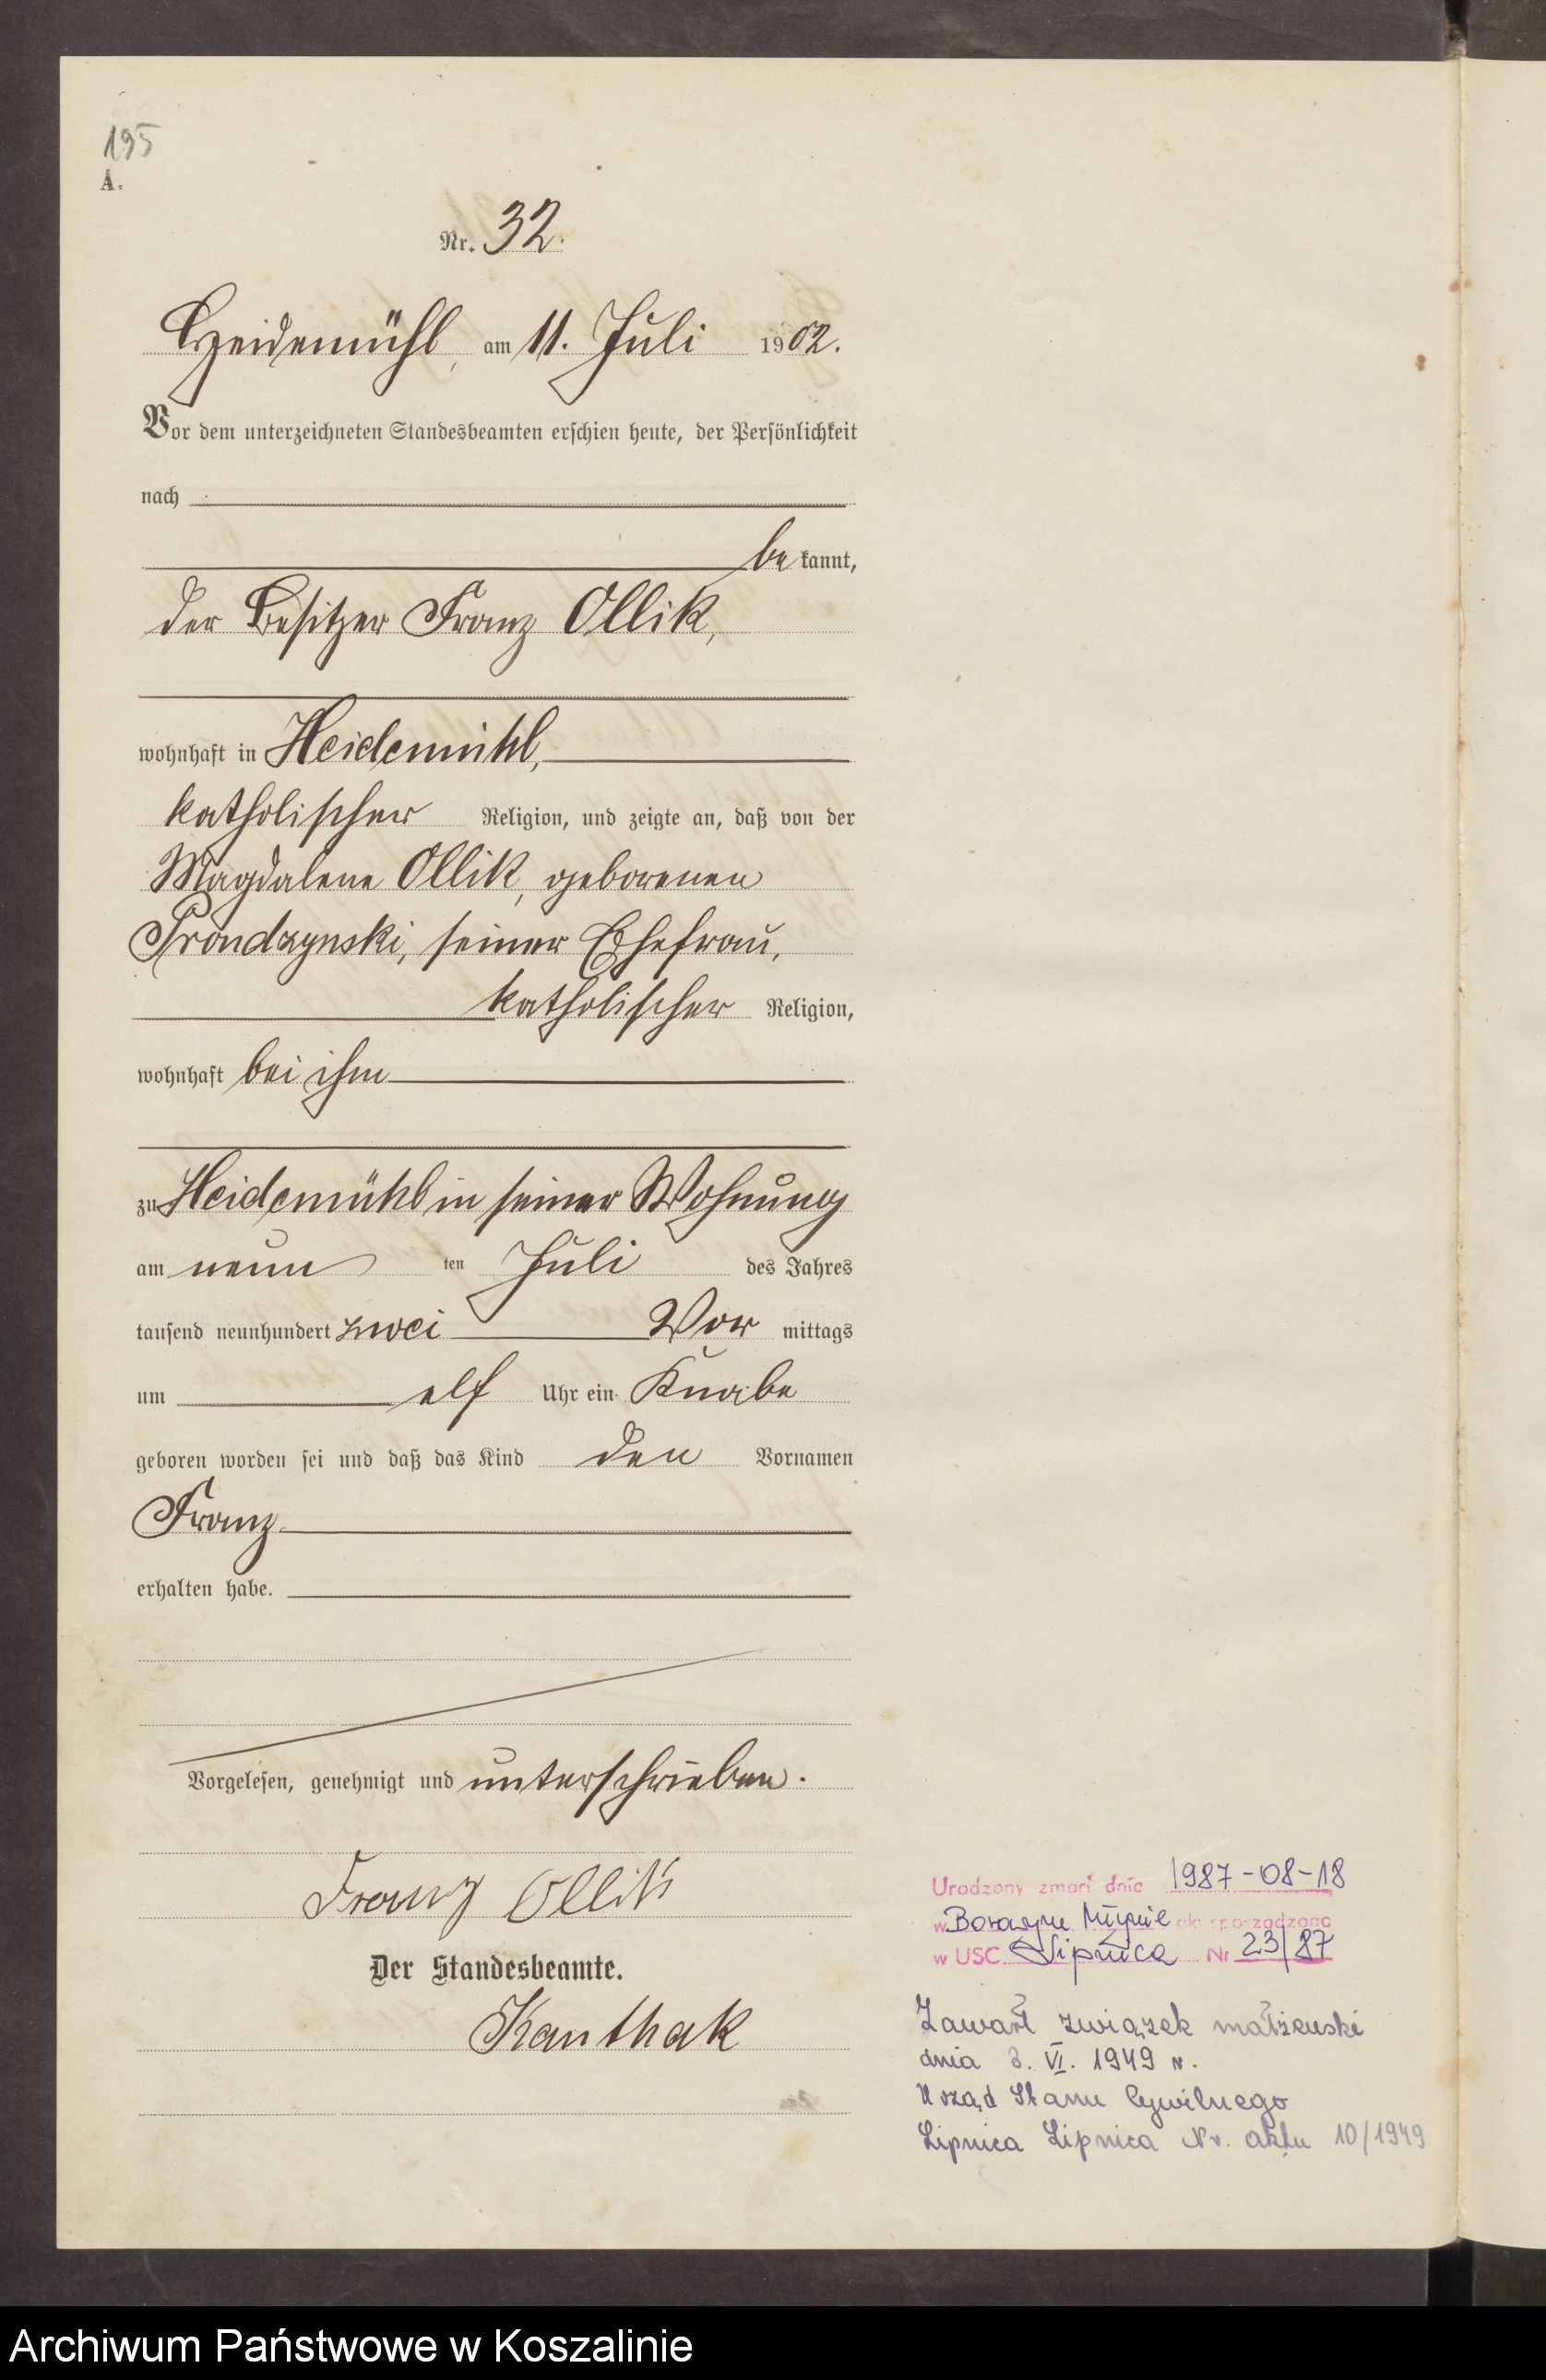 195
A.
Nr. 32.
Heidemühl, am 11. Juli 1902.
Vor dem unterzeichneten Standesbeamten erschien heute, der Persönlichkeit
nach
be kannt,
der Besitzer Franz Ollik,
wohnhaft in Heidemühl,
katholischer Religion, und zeigte an, daß von der
Magdalene Ollik, geborenen
Prondzynski, seiner Ehefrau,
katholischer Religion,
wohnhaft bei ihm
zu Heidemühl in seiner Wohnung
am neun ten Juli des Jahres
tausend neunhundert zwei Vor mittags
um elf Uhr ein Knabe
geboren worden sei und daß das Kind den Vornamen
Franz
erhalten habe.
Vorgelesen, genehmigt und unterschrieben.
Franz Ollik
Der Standesbeamte.
Kanthak
Urodzony zmarł dnia 1987-08-18
w Borowym Młynie akt sporządzono
w USC Lipnica Nr 23/87
Zawarł związek małżeński
dnia 3. VI. 1949 r.
Urząd Stanu Cywilnego
Lipnica Lipnica Nr. aktu 10/1949
Archiwum Państwowe w Koszalinie